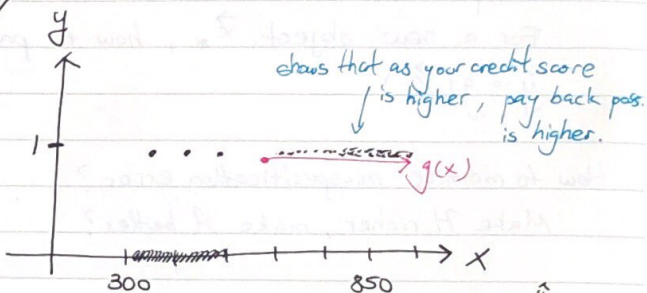 y
shows that as your credit score
is higher, pay back poss.
is higher.
1
g(x)
x
300
850